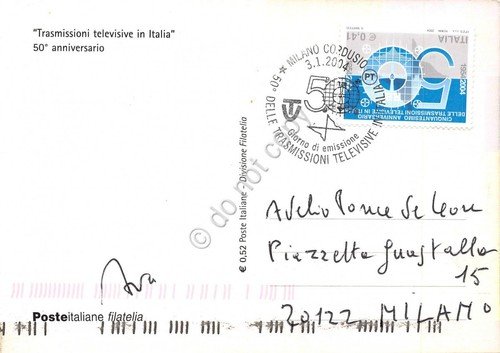 "Trasmissioni televisive in Italia"
50° anniversario
MILANO CORDUSIO
3.1.2004
50
PT
Giorno di emissione
50° DELLE TRASMISSIONI TELEVISIVE IN ITALIA
€ 0,41
ITALIA
1954/2004
CINQUANTESIMO ANNIVERSARIO
DELLE TRASMISSIONI TELEVISIVE IN ITALIA
do not copy
€ 0,52 Poste Italiane - Divisione Filatelia
Adelio Ponce de Leon
Piazzetta Guastalla
15
20122 MILANO
Posteitaliane filatelia